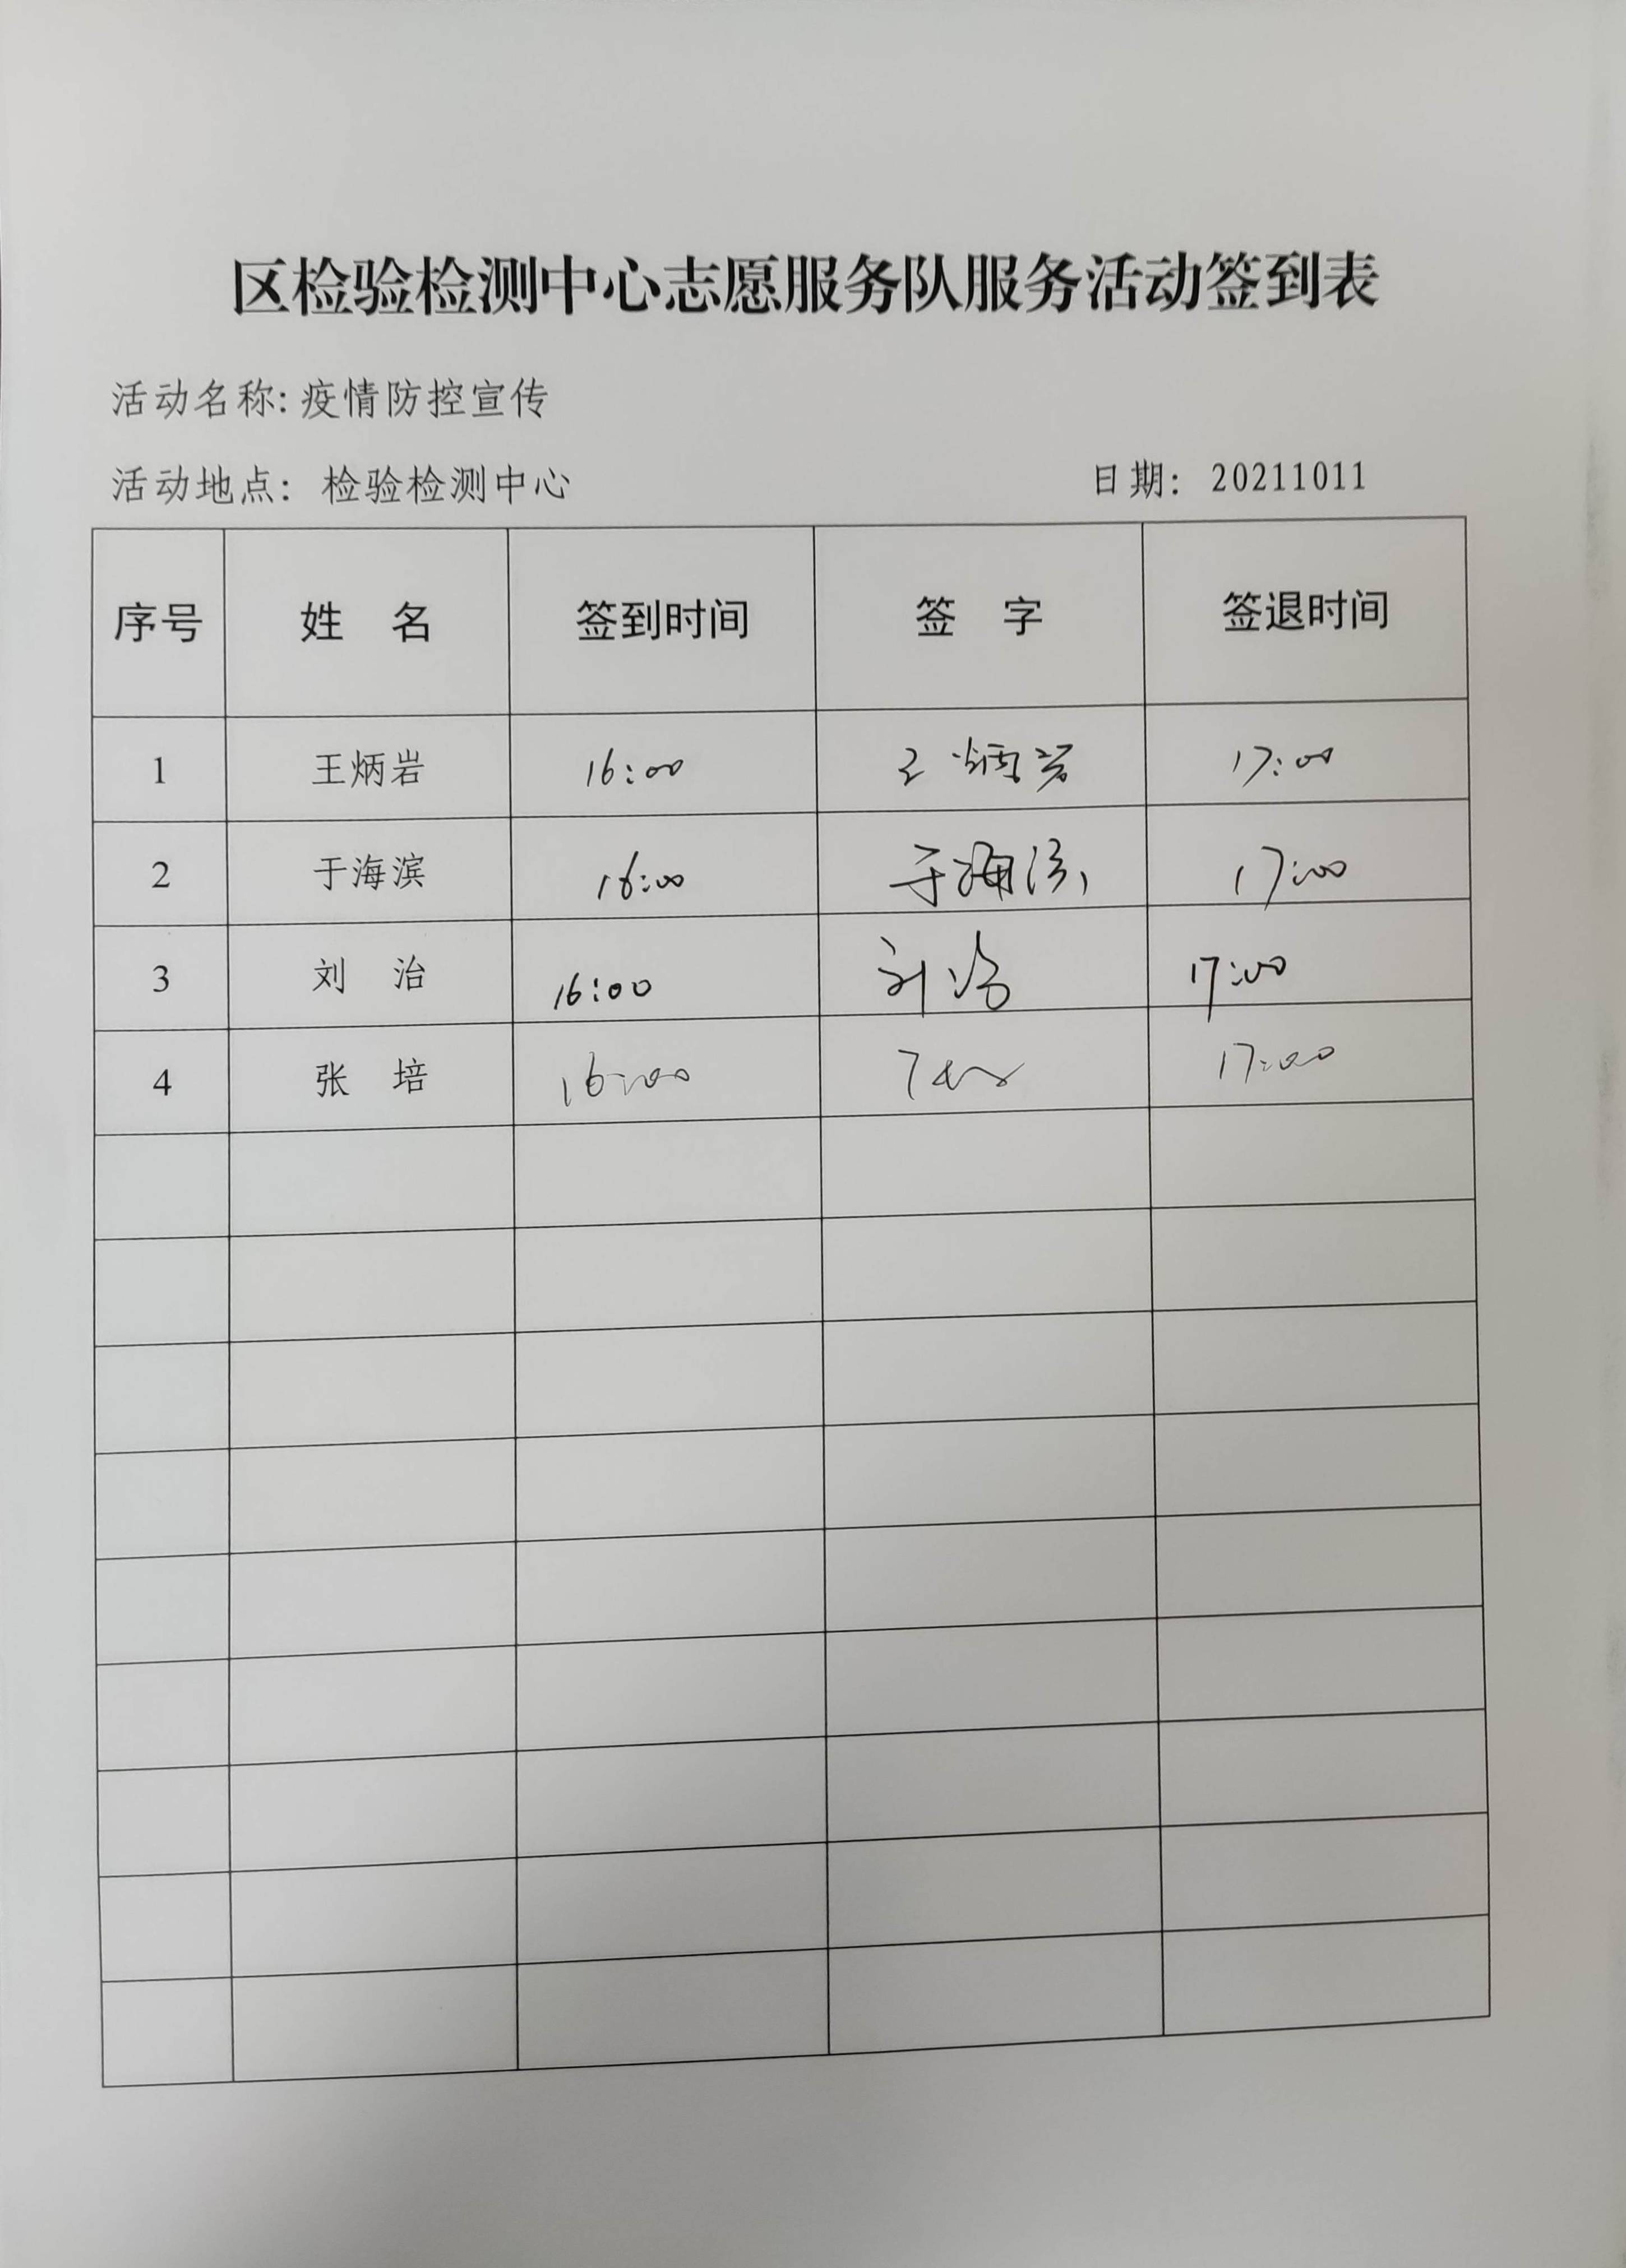 区检验检测中心志愿服务队服务活动签到表
活动名称: 疫情防控宣传
活动地点: 检验检测中心 日期: 20211011
序号 姓 名 签到时间 签 字 签退时间
1 王炳岩 16:00 王炳岩 17:00
2 于海滨 16:00 于海滨 17:00
3 刘 治 16:00 刘治 17:00
4 张 培 16:00 17:00